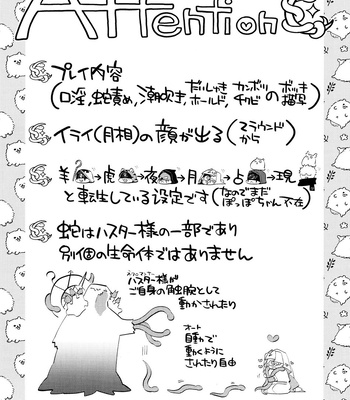 Attention
プレイ内容
(口淫、蛇責め、潮吹き、だいしゅきホールド、カンボツチクビのボッキ描写)
イライ(月相)の顔が出る(2ラウンドから)
羊→虎→夜→月→占→現
と転生している設定です(なのでまだぽっぽちゃん不在)
蛇はハスター様の一部であり
別個の生命体ではありません
ハスター様が
ご自身の角虫腕として
動かされたり
オート
自動で
動くように
されたり自由